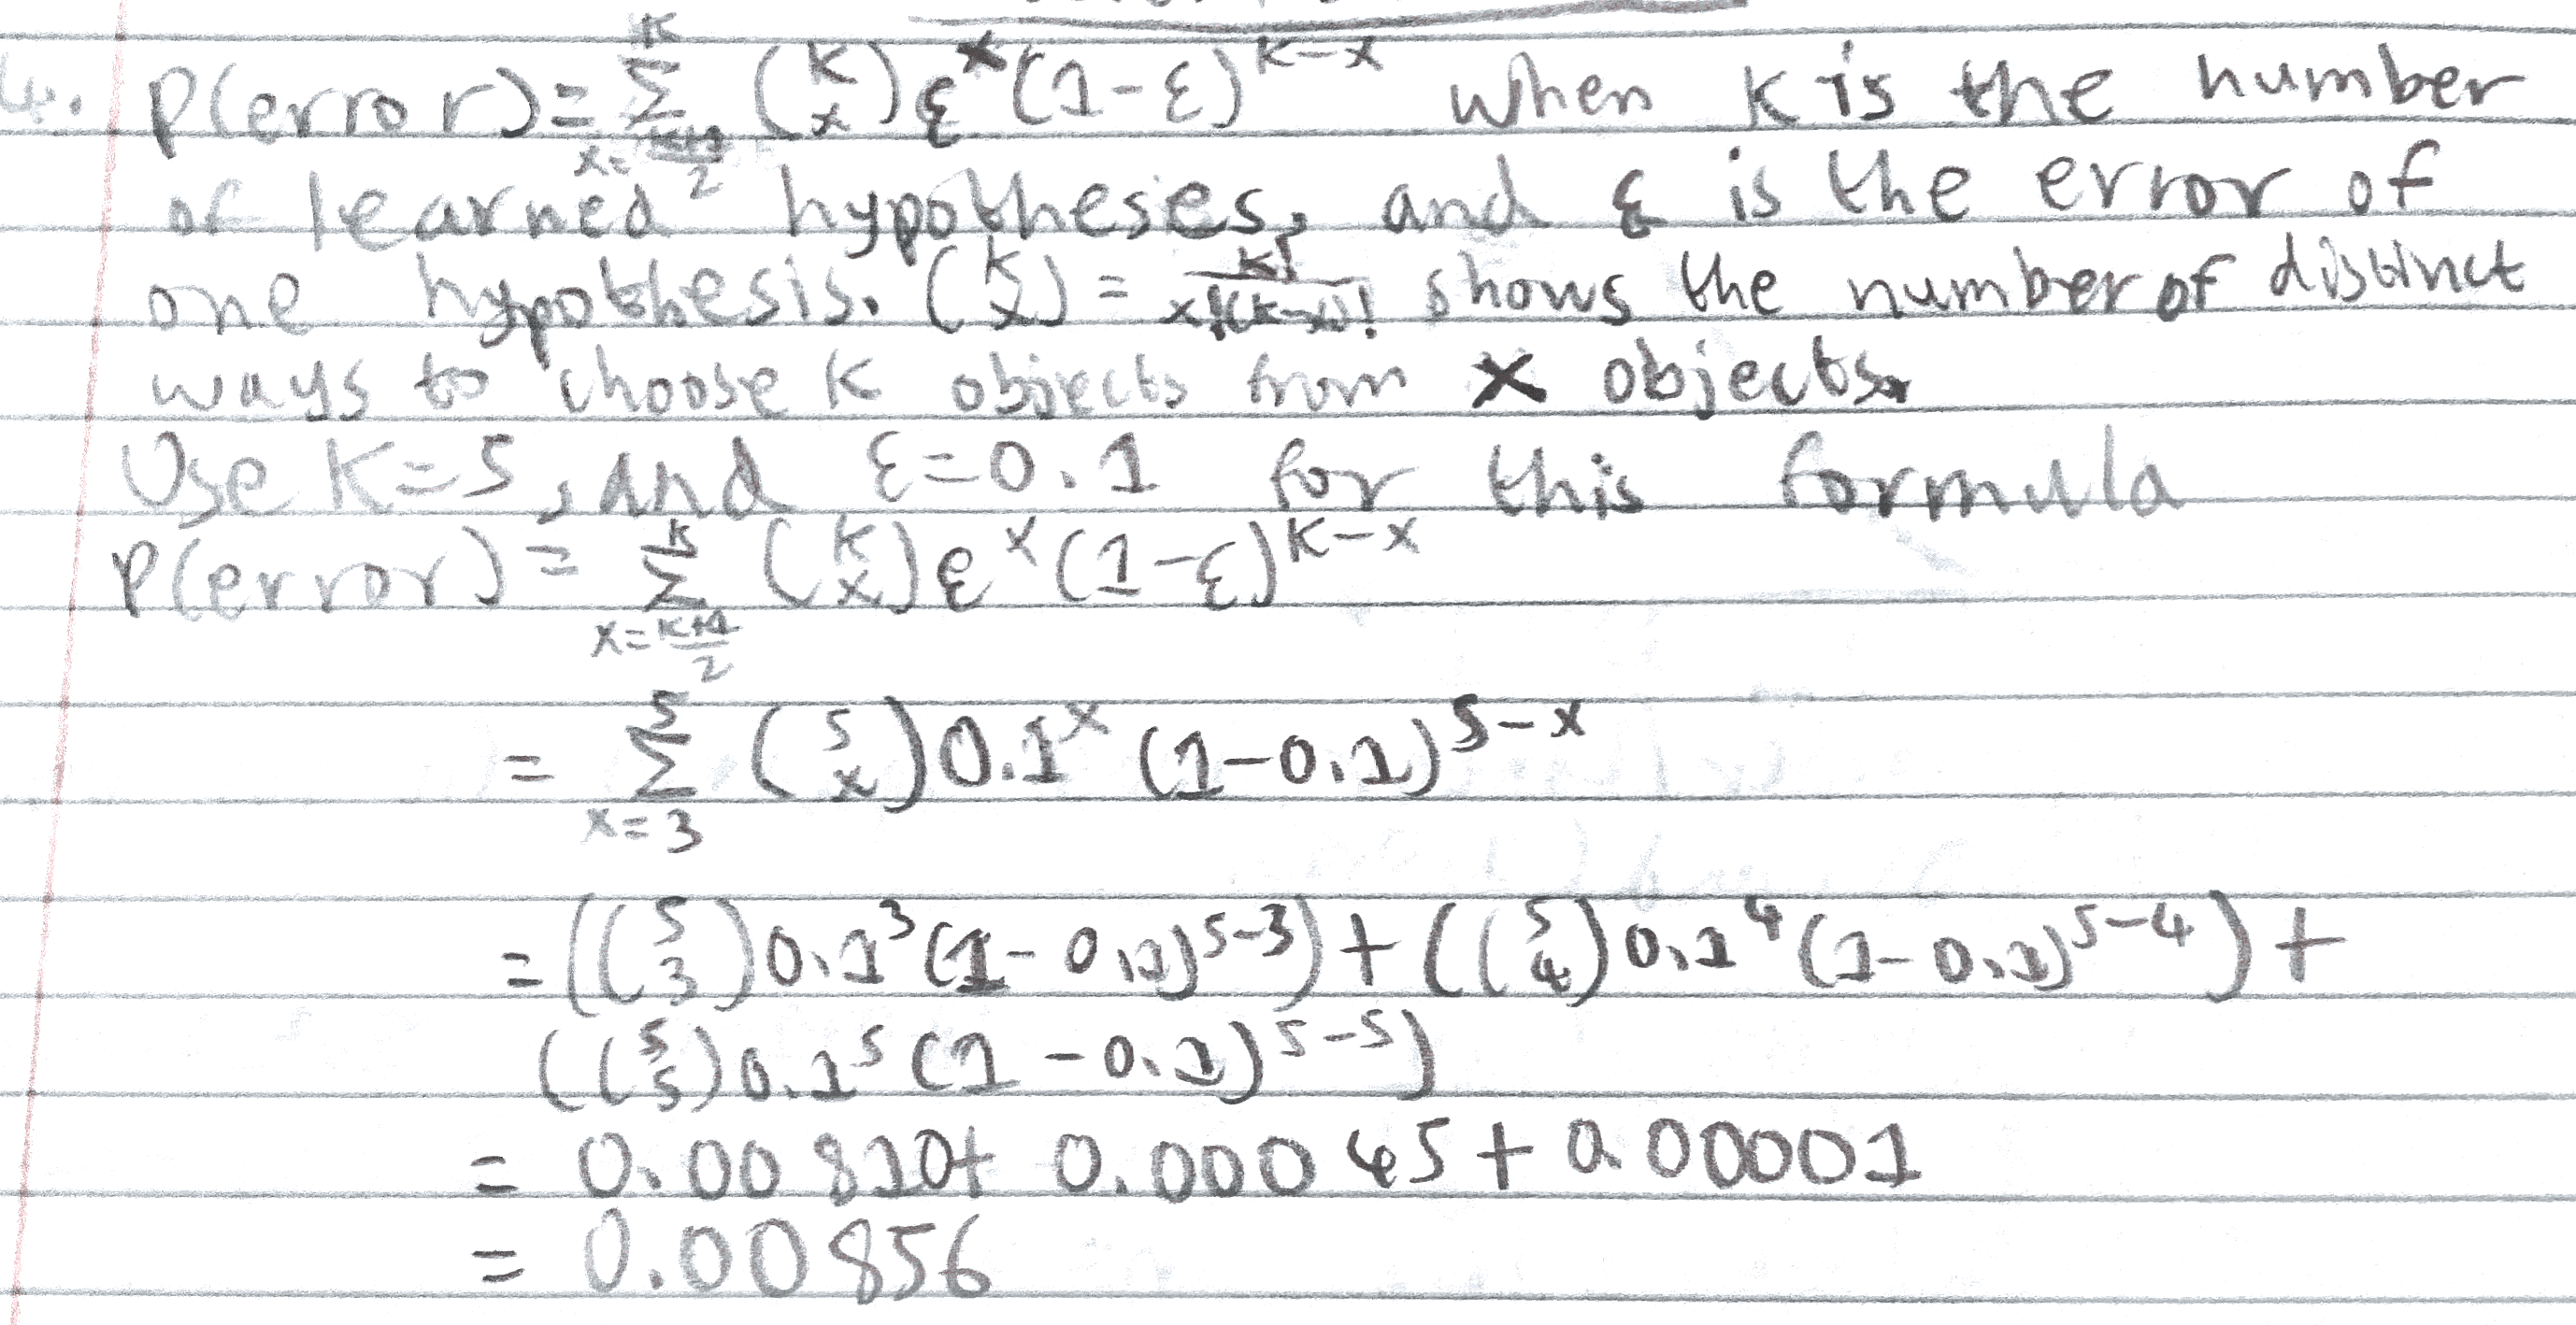 4. P(error) = \sum_{x=\frac{k+1}{2}}^{k} \binom{k}{x} ε^x (1-ε)^{k-x} when k is the number
of learned hypotheses, and ε is the error of
one hypothesis. \binom{k}{x} = \frac{k!}{x!(k-x)!} shows the number of distinct
ways to choose k objects from x objects.
Use k=5, and ε=0.1 for this formula
P(error) = \sum_{x=\frac{k+1}{2}}^{k} \binom{k}{x} ε^x (1-ε)^{k-x}
= \sum_{x=3}^{5} \binom{5}{x} 0.1^x (1-0.1)^{5-x}
= (\binom{5}{3} 0.1^3 (1-0.1)^{5-3}) + (\binom{5}{4} 0.1^4 (1-0.1)^{5-4}) +
(\binom{5}{5} 0.1^5 (1-0.1)^{5-5})
= 0.00810 + 0.00045 + 0.00001
= 0.00856